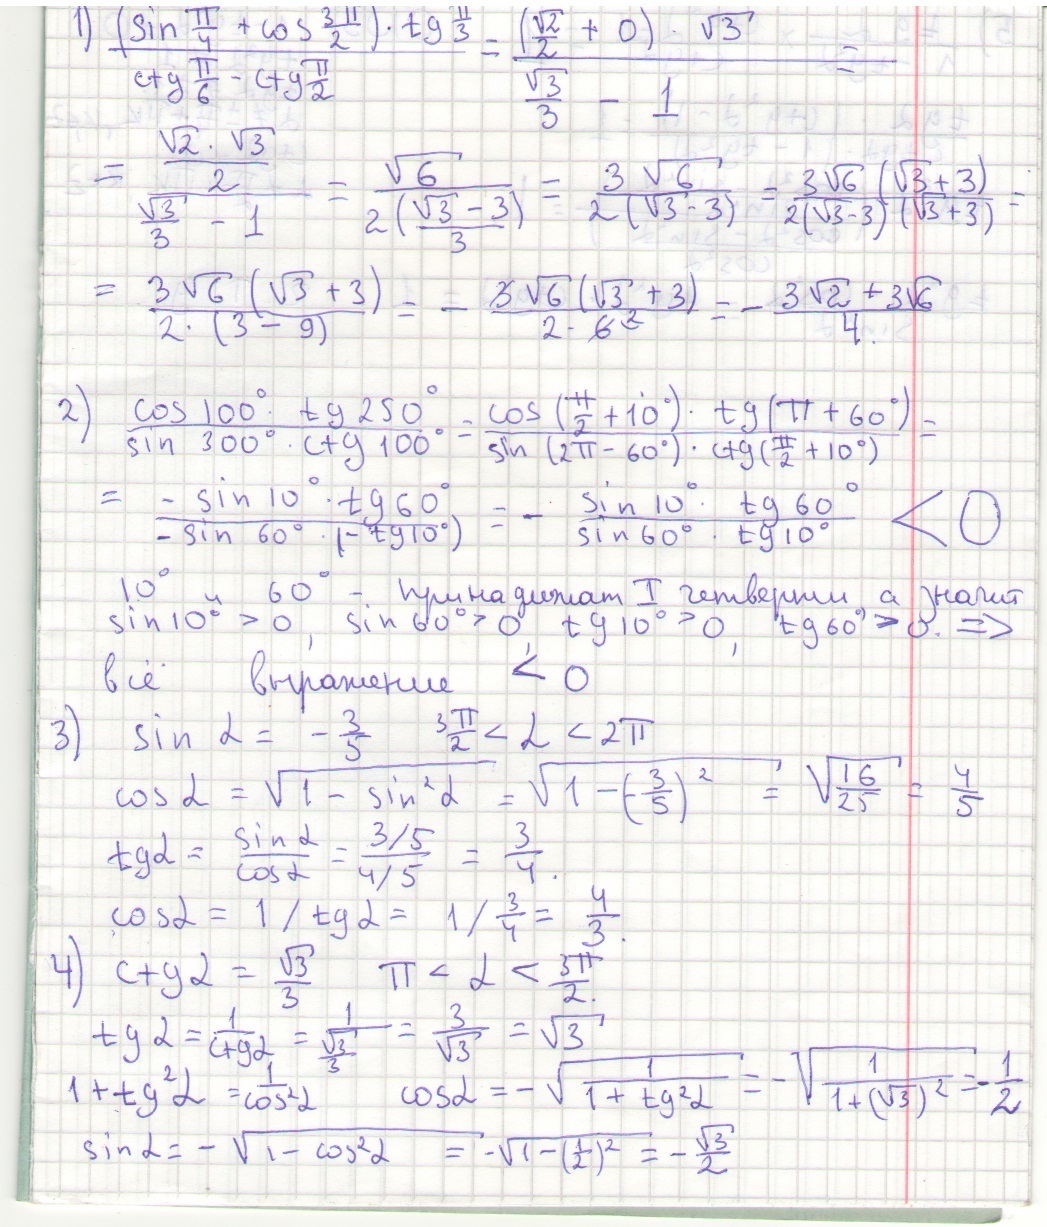 1) ((sin π/4 + cos 3π/2) · tg π/3) / (ctg π/6 - ctg π/2) = ((√2/2 + 0) · √3) / (√3/3 - 1) =
= (√2 · √3 / 2) / (√3/3 - 1) = √6 / (2((√3 - 3)/3)) = 3√6 / (2(√3 - 3)) = 3√6 (√3 + 3) / (2(√3 - 3)(√3 + 3)) =
= 3√6 (√3 + 3) / (2 · (3 - 9)) = - 3√6 (√3 + 3) / (2 · 6 2) = - (3√2 + 3√6) / 4.
2) (cos 100° · tg 250°) / (sin 300° · ctg 100°) = (cos (π/2 + 10°) · tg (π + 60°)) / (sin (2π - 60°) · ctg (π/2 + 10°)) =
= (- sin 10° · tg 60°) / (- sin 60° · (- tg 10°)) = - (sin 10° · tg 60°) / (sin 60° · tg 10°) < 0
10° и 60° - принадлежат I четверти, а значит
sin 10° > 0, sin 60° > 0, tg 10° > 0, tg 60° > 0. =>
всё выражение < 0
3) sin α = - 3/5 3π/2 < α < 2π
cos α = √(1 - sin² α) = √(1 - (-3/5)²) = √(16/25) = 4/5
tg α = sin α / cos α = (3/5) / (4/5) = 3/4.
cos α = 1 / tg α = 1 / 3/4 = 4/3.
4) ctg α = √3/3 π < α < 3π/2.
tg α = 1/ctg α = 1/(√3/3) = 3/√3 = √3
1 + tg² α = 1/cos² α cos α = - √(1/(1 + tg² α)) = - √(1/(1 + (√3)²)) = - 1/2
sin α = - √(1 - cos² α) = - √(1 - (1/2)²) = - √3/2